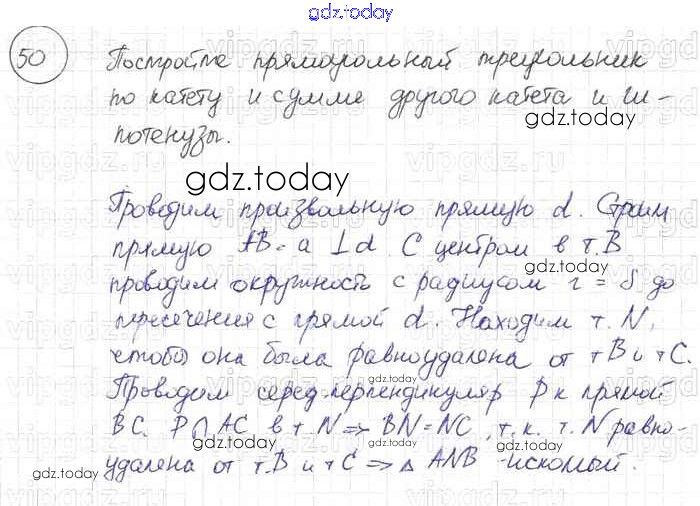 gdz.today
50 Постройте прямоугольный треугольник
по катету и сумме другого катета и ги-
gdz.today
потенузы.
gdz.today
Проводим произвольную прямую d. Строим
прямую AB=a ⊥ d. С центром в т.B
gdz.today
проводим окружность с радиусом r = S до
gdz.today
пересечения с прямой d. Находим т. N,
чтобы она была равноудалена от тB и тC.
gdz.today
Проводим серед.перпендикуляр P к прямой
BC. P∩AC в т N => BN=NC, т.к. т. N равно-
gdz.today
gdz.today
удалена от т.B и тC => △ ANB -искомый.
gdz.today